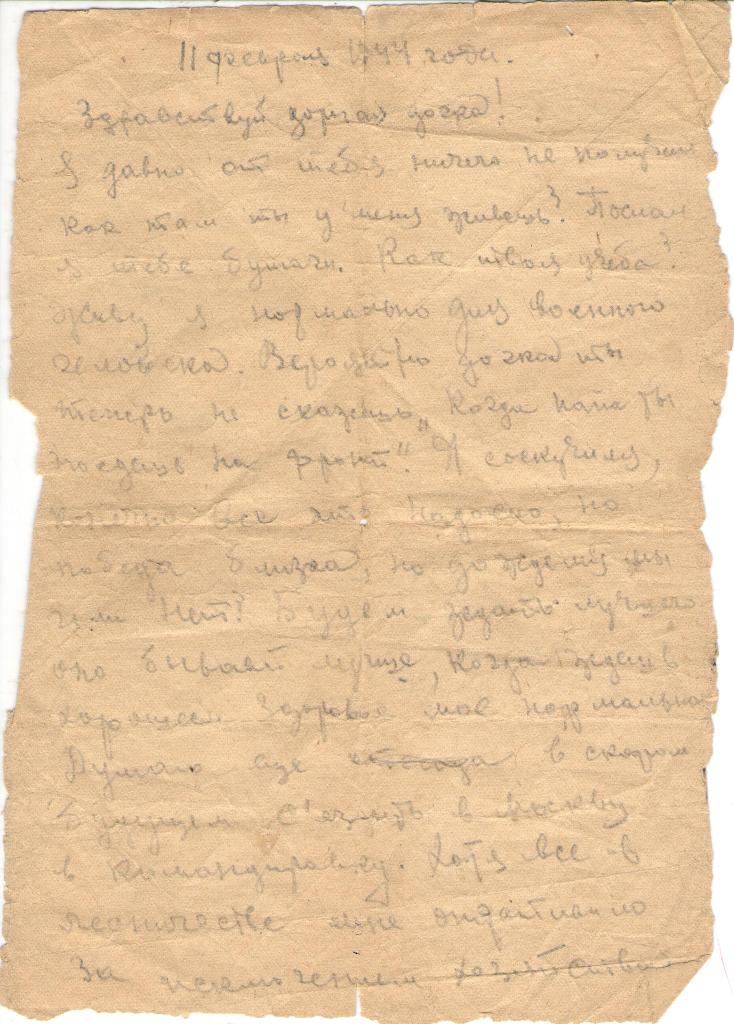 11 февраля 1944 года.
Здравствуй дочка!
Я давно от тебя ничего не получал
как там ты у меня живешь? Послал
я тебе бумаги. Как твоя учеба?
Живу я нормально для военного
человека. Вероятно дочка ты
теперь не скажешь "Когда папа ты
поедешь на фронт". Я соскучился,
конечно все это надоело, но
победа близка, но дождемся мы
или нет? Будем ждать лучшего
оно бывает лучше, когда ждешь
хорошее. Здоровье мое нормально
Думаю еще в скором
будущем съездить в Москву
в командировку. Хотя все в
лесничестве мне
За исключением